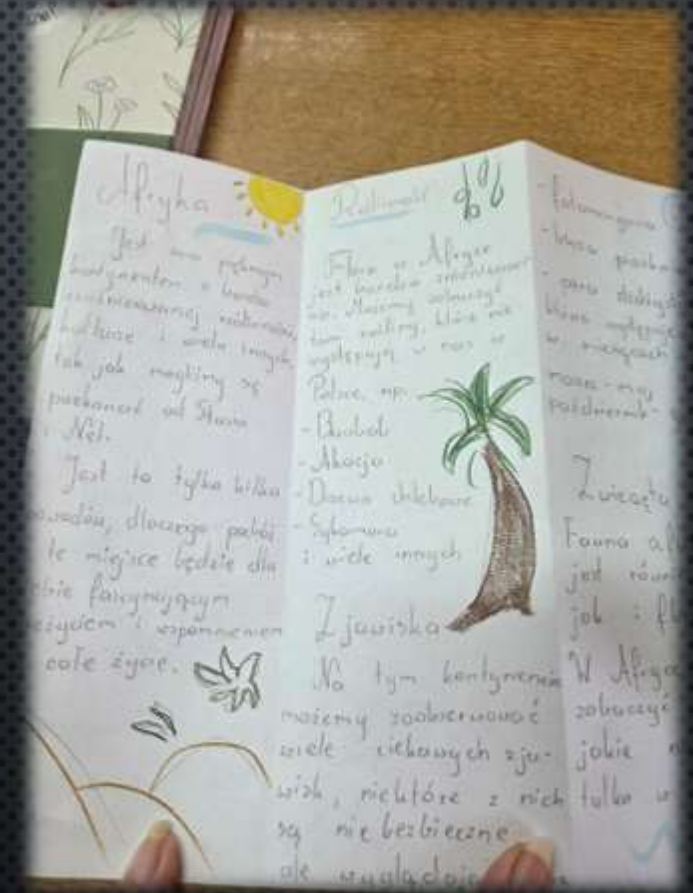 Afryka
Jest ona pięknym
kontynentem o bardzo
zróżnicowanej roślinności,
kulturze i wielu innych
tak jak mogliśmy się
przekonać od Stasia
i Nel.
Jest to tylko kilka
powodów, dlaczego podróż
te miejsce będzie dla
ciebie fascynującym
przeżyciem i wspomnieniem
całe życie.
Roślinność
Flora w Afryce
jest bardzo
Możemy zobaczyć
tam rośliny, które nie
występują u nas w
Polsce, np.
- Baobab
- Akacja
- Drzewo chlebowe
- Sykomora
i wiele innych
Zjawiska
Na tym kontynencie
możemy zaobserwować
wiele ciekawych zja-
wisk, niektóre z nich
są niebezbieczne
ale wyglądają
- fatamorgana
- burza
- pora
które występuje
w miesiącach
marzec-maj
październik-
Zwierzęta
Fauna
jest
jak i
W
zobaczyć
jakie
tylko w